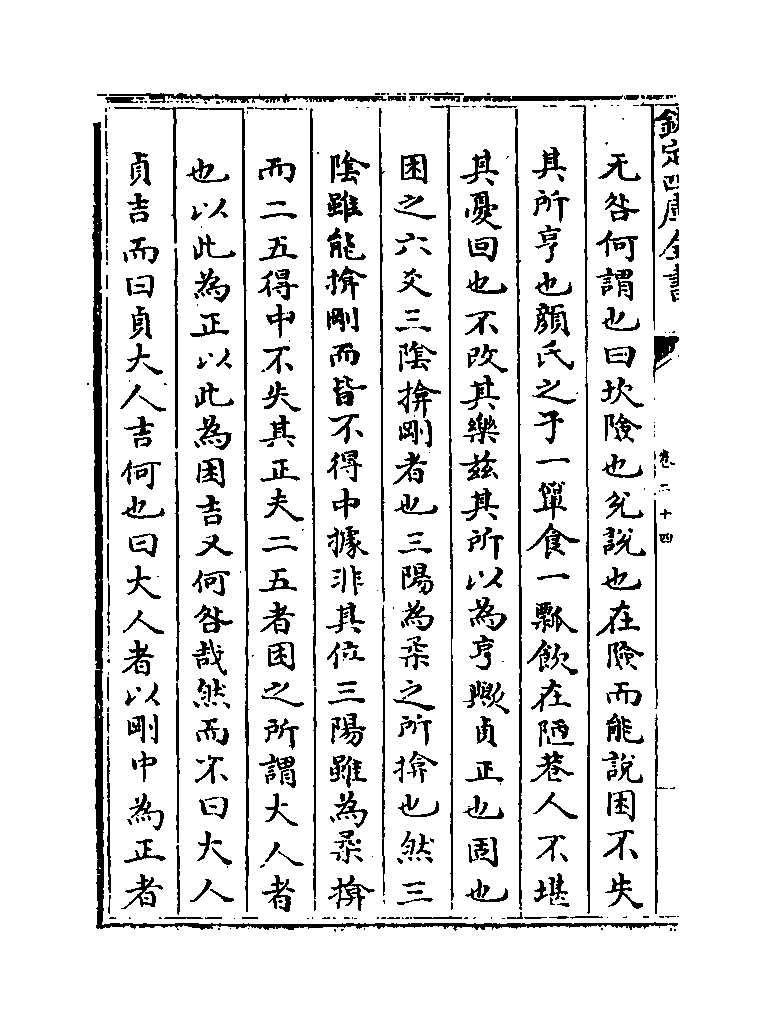 欽定四庫全書
卷二十四
无咎何謂也曰坎險也兌說也在險而能說困不失
其所亨也顔氏之子一簞食一瓢飲在陋巷人不堪
其憂回也不改其樂茲其所以為亨歟貞正也固也
困之六爻三陰揜剛者也三陽為柔之所揜也然三
陰雖能揜剛而皆不得中據非其位三陽雖為柔揜
而二五得中不失其正夫二五者困之所謂大人者
也以此為正以此為困吉又何咎哉然而不曰大人
貞吉而曰貞大人吉何也曰大人者以剛中為正者